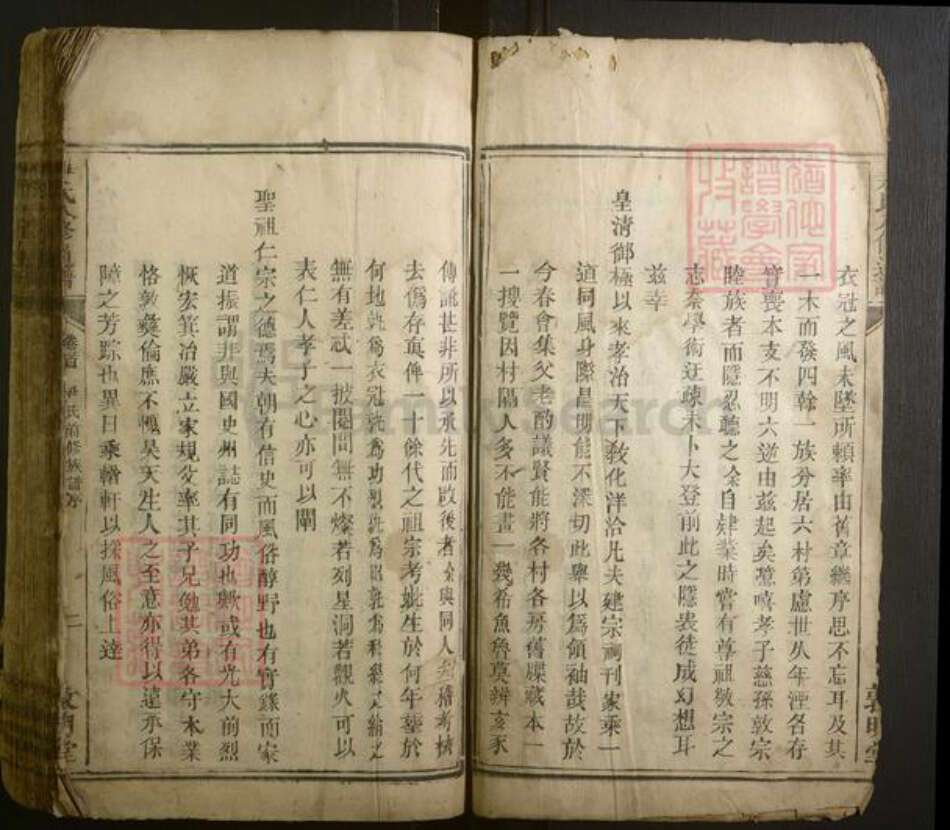 衣冠之風未墜所賴率由舊章繼序思不忘耳及其
一木而發四幹一族分居六村第慮世久年湮各存
實喪本支不明六逆由茲起矣噫嘻孝子慈孫敦宗
睦族者而隱忍聽之余自肄業時嘗有尊祖敬宗之
志柰學術迂疎未卜大登前此之隱衷徒成幻想耳
茲幸
皇清御極以來孝治天下敎化洋洽凡夫建宗祠刊家乘一
道同風身際昌明能不深切此舉以爲領袖哉故於
今春會集父老酌議賢能將各村各房舊牒彚本一
一搜覽因村隔人多不能畫一幾希魚魯莫辨亥豕
傳訛甚非所以承先而啟後者余與同人 稽考核
去僞存真俾一十餘代之祖宗考妣生於何年塟於
何地孰爲衣冠孰爲功 孰爲昭孰爲穆 之
無有差忒一披閱間無不燦若列星洞若觀火可以
表仁人孝子之心亦可以闡
聖祖仁宗之德焉夫朝有信史而風俗醇野也有實錄而家
道振謂非與國史州誌有同功也歟或有光大前烈
恢宏箕冶嚴立家規父率其子兄勉其弟各守本業
恪敦彞倫庶不愧昊天生人之至意亦得以遠承保
障之芳踪也異日乘輶軒以採風俗上達
氏 修 譜
卷首
尹氏前修族譜序
二
敦睦堂
敦睦堂
譜學會
收藏
Family Search